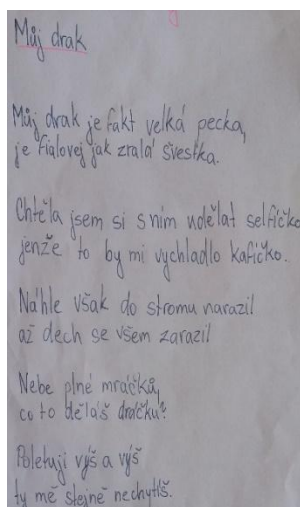 Můj drak
Můj drak je fakt velká pecka,
je fialovej jak zralá švestka.
Chtěla jsem si s ním udělat selfíčko
jenže to by mi vychladlo kafíčko.
Náhle však do stromu narazil
až dech se všem zarazil
Nebe plné mráčků,
co to děláš dráčku?
Poletuji výš a výš
ty mě stejně nechytíš.